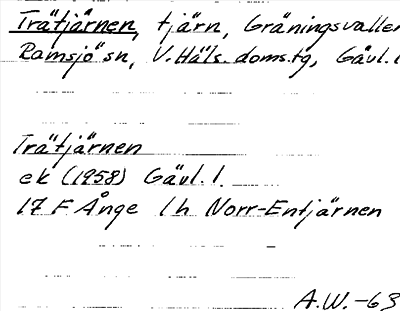 Trätjärnen, tjärn, Gräningsvallen
Ramsjö sn, V. Häls. doms.tg, Gävl. l
Trätjärnen
ek (1958) Gävl. l.
17 F Ånge 1 h Norr-Entjärnen
A.W. -63